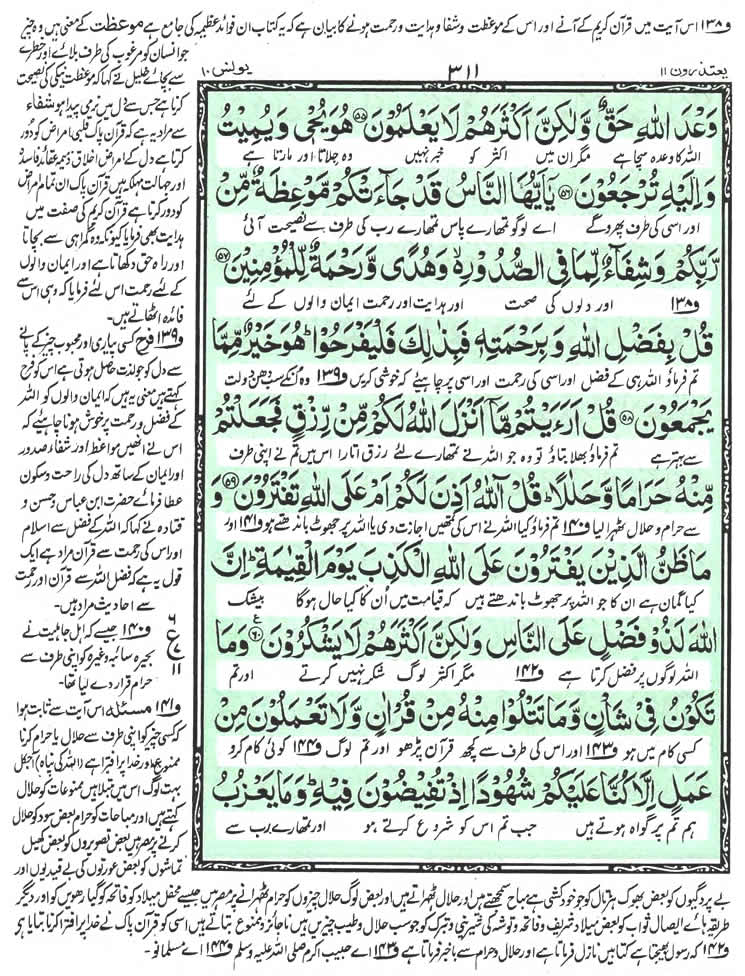 و۱۳۸ اس آیت میں قرآن کریم کے آنے اور اس کے موعظت و شفا و ہدایت و رحمت ہونے کا بیان ہے کہ یہ کتاب ان فوائد عظیمہ کی جامع ہے موعظت کے معنی ہیں وہ چیز
یعتذرون ۱۱
۳۱۱
یونس ۱۰
وَعْدَ اللّٰهِ حَقٌّ وَّلٰكِنَّ اَكْثَرَهُمْ لَا یَعْلَمُوْنَ ۵۵ هُوَ یُحْیٖ وَیُمِیْتُ
اللہ کا وعدہ سچا ہے مگر ان میں اکثر کو خبر نہیں وہ جلاتا اور مارتا ہے
وَاِلَیْهِ تُرْجَعُوْنَ ۵۶ یٰۤاَیُّهَا النَّاسُ قَدْ جَآءَتْكُمْ مَّوْعِظَةٌ مِّنْ
اور اسی کی طرف پھرو گے اے لوگو تمہارے پاس تمہارے رب کی طرف سے نصیحت آئی
رَّبِّكُمْ وَشِفَآءٌ لِّمَا فِی الصُّدُوْرِ وَهُدًی وَّرَحْمَةٌ لِّلْمُؤْمِنِیْنَ ۵۷
و۱۳۸ اور دلوں کی صحت اور ہدایت اور رحمت ایمان والوں کے لئے
قُلْ بِفَضْلِ اللّٰهِ وَبِرَحْمَتِهٖ فَبِذٰلِكَ فَلْیَفْرَحُوْا هُوَ خَیْرٌ مِّمَّا
تم فرماؤ اللہ ہی کے فضل اور اسی کی رحمت اور اسی پر چاہئے کہ خوشی کریں و۱۳۹ وہ ان کے سب دھن دولت
یَجْمَعُوْنَ ۵۸ قُلْ اَرَءَیْتُمْ مَّاۤ اَنْزَلَ اللّٰهُ لَكُمْ مِّنْ رِّزْقٍ فَجَعَلْتُمْ
سے بہتر ہے تم فرماؤ بھلا بتاؤ تو وہ جو اللہ نے تمہارے لئے رزق اتارا اس میں تم نے اپنی طرف
مِّنْهُ حَرَامًا وَّحَلٰلًا قُلْ آٰللّٰهُ اَذِنَ لَكُمْ اَمْ عَلَی اللّٰهِ تَفْتَرُوْنَ ۵۹ وَ
سے حرام و حلال ٹھہرا لیا و۱۴۰ تم فرماؤ کیا اللہ نے اس کی تمہیں اجازت دی یا اللہ پر جھوٹ باندھتے ہو و۱۴۱ اور
مَا ظَنُّ الَّذِیْنَ یَفْتَرُوْنَ عَلَی اللّٰهِ الْكَذِبَ یَوْمَ الْقِیٰمَةِ اِنَّ
کیا گمان ہے ان کا جو اللہ پر جھوٹ باندھتے ہیں کہ قیامت میں اُن کا کیا حال ہو گا بیشک
اللّٰهَ لَذُوْ فَضْلٍ عَلَی النَّاسِ وَلٰكِنَّ اَكْثَرَهُمْ لَا یَشْكُرُوْنَ ۶۰ وَمَا
اللہ لوگوں پر فضل کرتا ہے و۱۴۲ مگر اکثر لوگ شکر نہیں کرتے اور تم
تَكُوْنُ فِیْ شَاْنٍ وَّمَا تَتْلُوْا مِنْهُ مِنْ قُرْاٰنٍ وَّلَا تَعْمَلُوْنَ مِنْ
کسی کام میں ہو و۱۴۳ اور اس کی طرف سے کچھ قرآن پڑھو اور تم لوگ و۱۴۴ کوئی کام کرو
عَمَلٍ اِلَّا كُنَّا عَلَیْكُمْ شُهُوْدًا اِذْ تُفِیْضُوْنَ فِیْهِ وَمَا یَعْزُبُ
ہم تم پر گواہ ہوتے ہیں جب تم اس کو شروع کرتے ہو اور تمہارے رب سے
جو انسان کو مرغوب کی طرف بلائے اور خطرے
سے بچائے خلیل نے کہا کہ موعظت نیکی کی نصیحت
کرنا ہے جس سے دل میں نرمی پیدا ہو شفاء
سے مراد یہ ہے کہ قرآن پاک قلبی امراض کو دُور
کرتا ہے دل کے امراض اخلاق ذمیمہ عقائد فاسدہ
اور جہالت مہلکہ ہیں قرآن پاک ان تمام امراض
کو دور کرتا ہے قرآن کریم کی صفت میں
ہدایت بھی فرمایا کیونکہ وہ گمراہی سے بچاتا
اور راہ حق دکھاتا ہے اور ایمان والوں
کے لئے رحمت اس لئے فرمایا کہ وہی اس سے
فائدہ اٹھاتے ہیں۔
و۱۳۹ فرح کسی پیاری اور محبوب چیز کے پانے
سے دل کو جو لذت حاصل ہوتی ہے اس کو فرح
کہتے ہیں معنی یہ ہیں کہ ایمان والوں کو اللہ
کے فضل و رحمت پر خوش ہونا چاہئے کہ
اس نے انھیں مواعظ اور شفاء صدور
اور ایمان کے ساتھ دل کی راحت و سکون
عطا فرمائے حضرت ابن عباس و حسن و
قتادہ نے کہا کہ اللہ کے فضل سے اسلام
اور اس کی رحمت سے قرآن مراد ہے ایک
قول یہ ہے کہ فضل اللہ سے قرآن اور رحمت
سے احادیث مراد ہیں۔
۶
ع
۱۱
و۱۴۰ جیسے کہ اہل جاہلیت نے
بحیرہ سائبہ وغیرہ کو اپنی طرف سے
حرام قرار دے لیا تھا۔
و۱۴۱ مسئلہ اس آیت سے ثابت ہوا
کہ کسی چیز کو اپنی طرف سے حلال یا حرام کرنا
ممنوع اور خدا پر افترا ہے (اللہ کی پناہ) آجکل
بہت لوگ اس میں مبتلا ہیں ممنوعات کو حلال
کہتے ہیں اور مباحات کو حرام بعض سود کو حلال
کرنے پر مصر ہیں بعض تصویروں کو بعض کھیل
تماشوں کو بعض عورتوں کی بے قیدیوں اور
بے پردگیوں کو بعض بھوک ہڑتال کو جو خود کشی ہے مباح سمجھتے ہیں اور حلال ٹھہراتے ہیں اور بعض لوگ حلال چیزوں کو حرام ٹھہرانے پر مصر ہیں جیسے محفل میلاد کو فاتحہ کو گیارھویں کو اور دیگر
طریقہ ہائے ایصال ثواب کو بعض میلاد شریف و فاتحہ و توشہ کی شیرینی و تبرک کو جو سب حلال و طیب چیزیں ہیں ناجائز و ممنوع بتاتے ہیں اسی کو قرآن پاک نے خدا پر افترا کرنا بتایا ہے
و۱۴۲ کہ رسول بھیجتا ہے کتابیں نازل فرماتا ہے اور حلال و حرام سے باخبر فرماتا ہے و۱۴۳ اے حبیب اکرم صلی اللہ علیہ وسلم و۱۴۴ اے مسلمانو۔